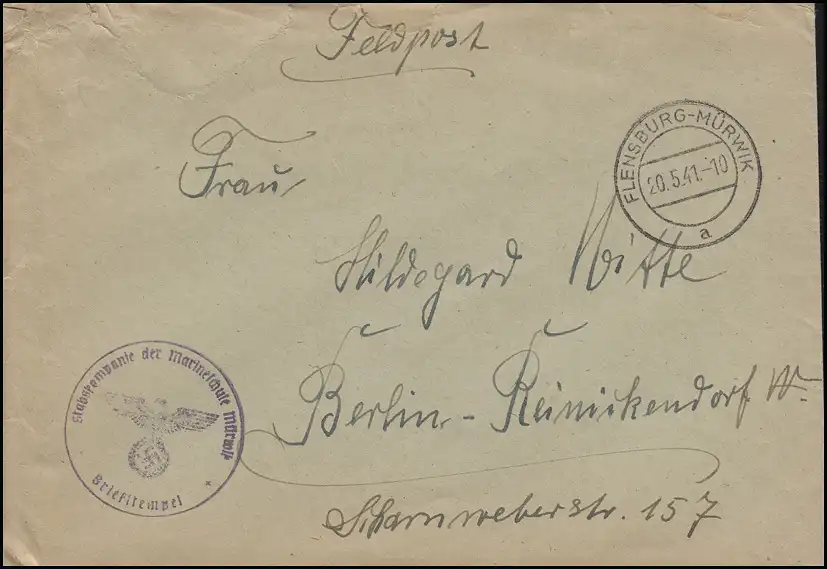 Feldpost
FLENSBURG-MÜRWIK
20.5.41.-10
a
Frau
Hildegard Witte
Berlin-Reinickendorf W.
Scharnweberstr. 157
Stabskompanie der Marineschule Mürwik
Briefstempel